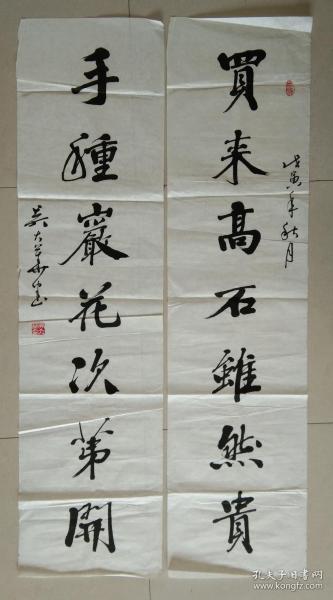 買来高石雖然貴
戊寅年秋月
手種巖花次第開
孔夫子旧书网